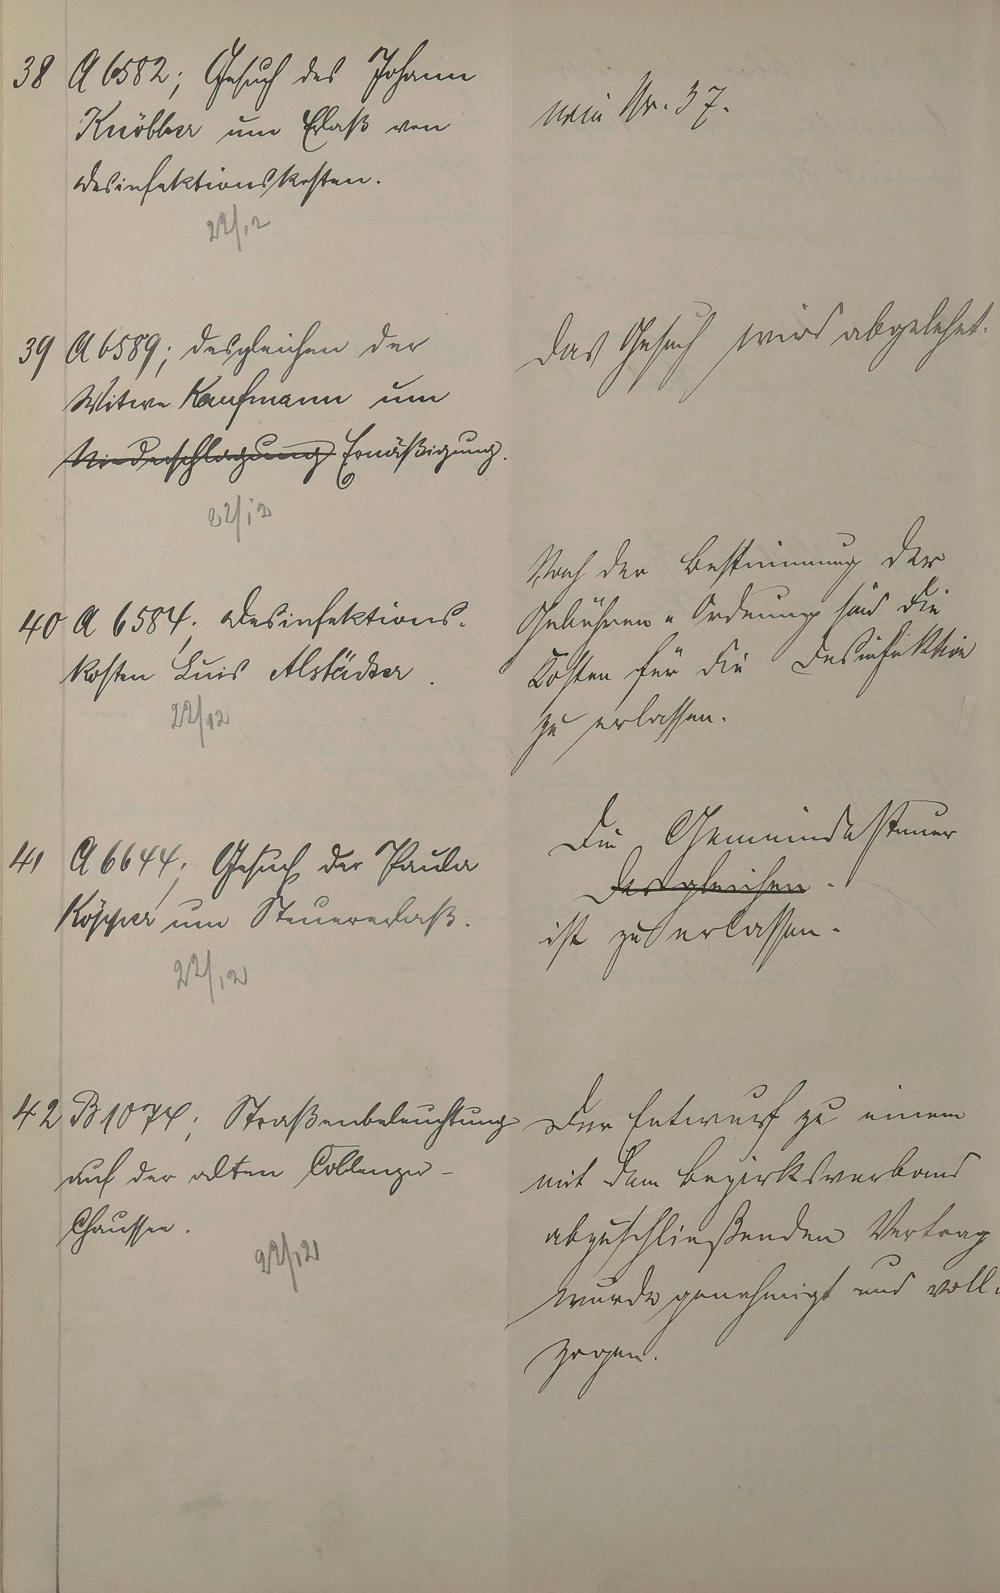 38 A 6582; Gesuch des Johann
Knöbber um Erlaß von
Desinfektionskosten.
22/12
wie Nr. 37.
39 A 6589; desgleichen der
Witwe Kaufmann um
Niederschlagung Ermäßigung.
22/12
Das Gesuch wird abgelehnt.
40 A 6584; Desinfektions-
kosten Luis Alstädter.
22/12
Nach der Bestimmung der
Gebühren-Ordnung sind die
Kosten für die Desinfektion
zu erlassen.
41 A 6644; Gesuch der Paula
um Steuererlaß.
22/12
Die Gemeindesteuer
Desgleichen.
ist zu erlassen.
42 B 1074; Straßenbeleuchtung
auf der alten Coblenzer-
Chaussee.
22/12
Der Entwurf zu einem
mit dem Bezirksverband
abzuschließenden Vertrag
wurde genehmigt und voll-
zogen.